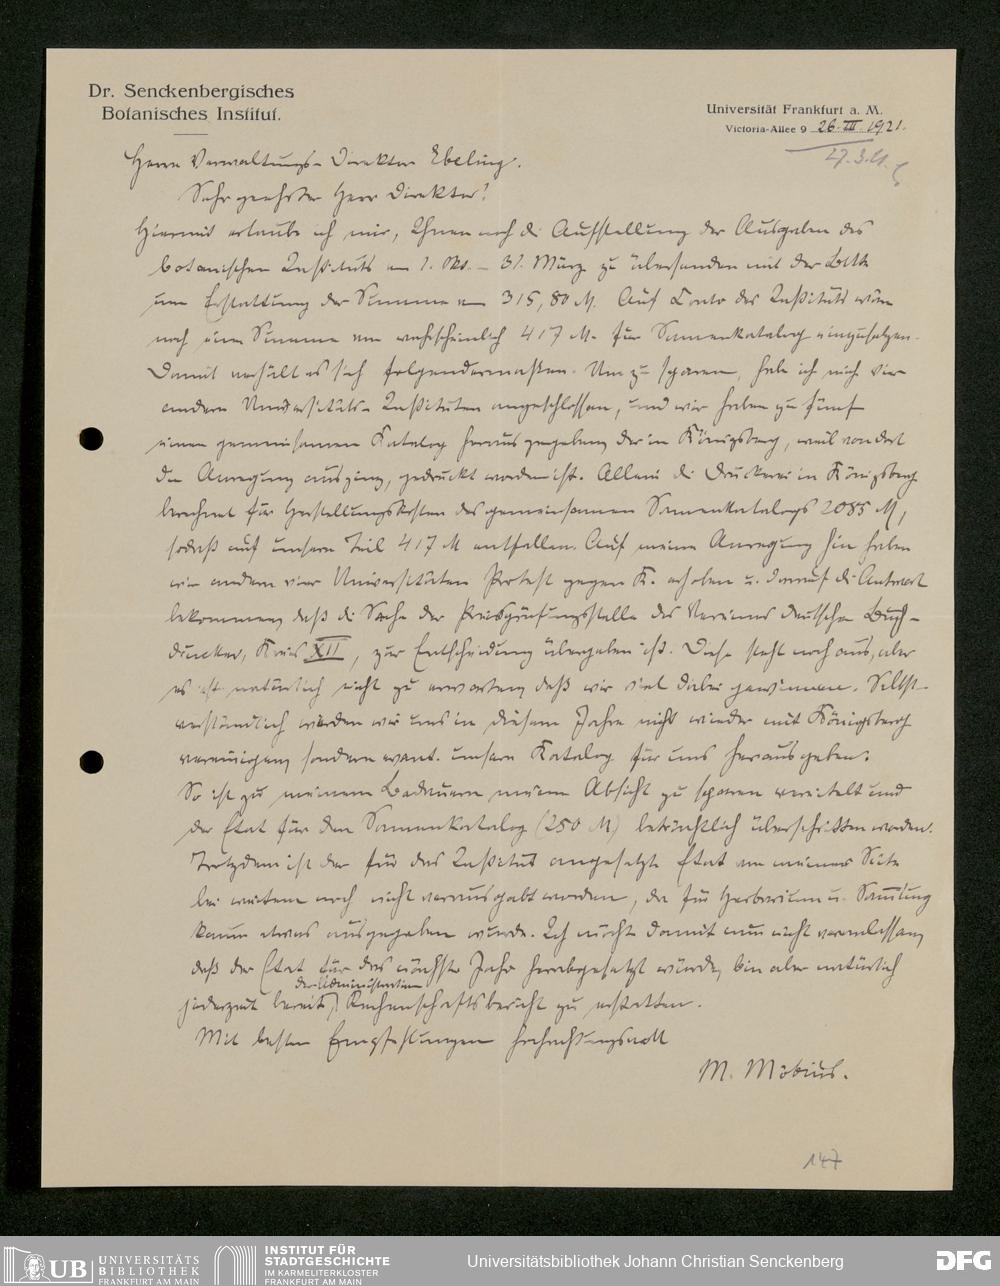 Dr. Senckenbergisches
Botanisches Institut.
Universität Frankfurt a. M.
Victoria-Allee 9 26. III. 1921.
27. 3. 21.
Herrn Verwaltungs-Direktor Ebeling.
Sehr geehrter Herr Direktor!
Hiermit erlaube ich mir, Ihnen noch die Aufstellung der Ausgaben des
botanischen Instituts 1. Okt. – 31. März zu übersenden mit der Bitte
um Erstattung der Summe von 315,80 M. Auf Conto des Instituts wäre
noch eine Summe von wahrscheinlich 417 M. für Samenkatalog einzusetzen.
Damit verhält es sich folgendermaßen. Um zu sparen, habe ich mich vier
andern Universitäts-Instituten angeschlossen, und wir haben zu fünf
einen gemeinsamen Katalog herausgegeben, der in Königsberg, weil von dort
die Anregung ausging, gedruckt worden ist. Allein die Druckerei in Königsberg
berechnet für Herstellungskosten des gemeinsamen Samenkatalogs 2085 M,
sodaß auf unsern Teil 417 M entfallen. Auf meine Anregung hin haben
wir andern vier Universitäten Protest gegen K. erhoben u. darauf die Antwort
bekommen, daß die Sache der Preisprüfungsstelle des Vereines deutscher Buch-
drucker, Kreis XII, zur Entscheidung übergeben ist. Diese steht noch aus, aber
es ist natürlich nicht zu erwarten, daß wir viel dabei gewinnen. Selbst-
verständlich werden wir uns in diesem Jahre nicht wieder mit Königsberg
vereinigen, sondern event. unsern Katalog für uns herausgeben.
So ist zu meinem Bedauern meine Absicht zu sparen vereitelt und
der Etat für den Samenkatalog (250 M) beträchtlich überschritten worden.
Trotzdem ist der für das Institut angesetzte Etat von meiner Seite
bei weitem noch nicht verausgabt worden, da für Herbarium u. Sammlung
kaum etwas ausgegeben wurde. Ich möchte damit nun nicht veranlassen,
daß der Etat für das nächste Jahr herabgesetzt würde, bin aber natürlich
der Administration
jederzeit bereit, Rechenschaftsbericht zu erstatten.
Mit besten Empfehlungen hochachtungsvoll
M. Möbius.
147
UB UNIVERSITÄTS
BIBLIOTHEK
FRANKFURT AM MAIN
INSTITUT FÜR
STADTGESCHICHTE
IM KARMELITERKLOSTER
FRANKFURT AM MAIN
Universitätsbibliothek Johann Christian Senckenberg
DFG